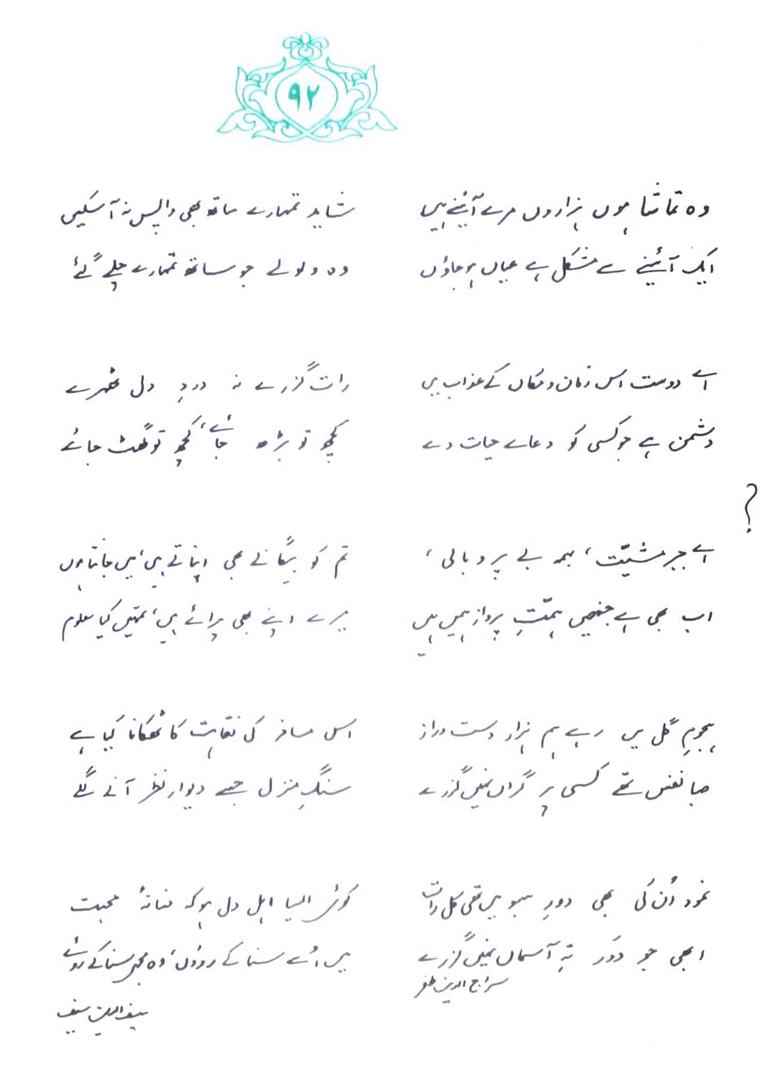 ۹۲
وہ تماشا ہوں ہزاروں مرے آئینے ہیں
ایک آئینے سے مشکل ہے عیاں ہو جاؤں
اے دوست اس زمان و مکاں کے عذاب میں
دشمن ہے جو کسی کو دعائے حیات دے
؟
اے جبرِ مشیّت، ہمہ بے پر و بالی،
اب بھی ہے جنھیں ہمّتِ پرواز ہمیں ہیں
ہجومِ گل میں رہے ہم ہزار دست دراز
صبا نفس تھے کسی پر گراں نہیں گزرے
نمود اُن کی بھی دورِ سبو میں تھی کل رات
ابھی جو دَور تہِ آسماں نہیں گزرے
سراج الدین ظفر
شاید تمہارے ساتھ بھی واپس نہ آ سکیں
وہ ولولے جو ساتھ تمہارے چلے گئے
رات گزرے نہ دردِ دل ٹھہرے
کچھ تو بڑھ جائے، کچھ تو گھٹ جائے
تم کو بیگانے بھی اپناتے ہیں، میں جانتا ہوں
میرے اپنے بھی پرائے ہیں، تمہیں کیا معلوم
اس مسافر کی نقاہت کا ٹھکانا کیا ہے
سنگِ منزل جسے دیوار نظر آنے لگے
کوئی ایسا اہلِ دل ہو کہ فسانۂ محبت
میں اُسے سنا کے روؤں، وہ مجھے سنا کے روئے
سیف الدین سیف